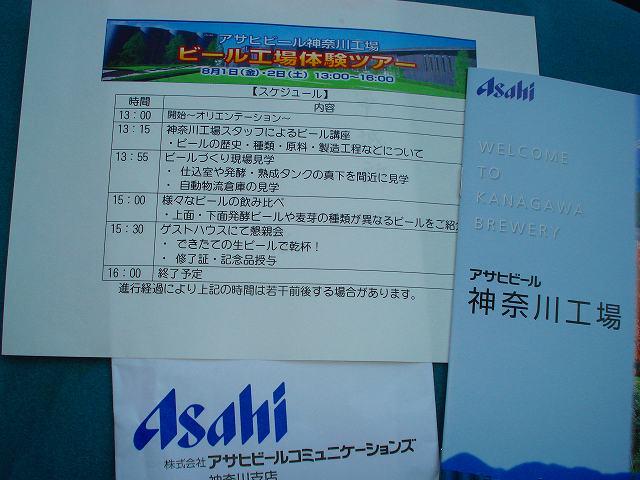 アサヒビール神奈川工場
ビール工場体験ツアー
8月1日(金)・2日(土) 13:00~16:00
【スケジュール】
時間 内容
13:00 開始~オリエンテーション~
13:15 神奈川工場スタッフによるビール講座
・ビールの歴史・種類・原料・製造工程などについて
13:55 ビールづくり現場見学
・ 仕込室や発酵・熟成タンクの真下を間近に見学
・ 自動物流倉庫の見学
15:00 様々なビールの飲み比べ
・上面・下面発酵ビールや麦芽の種類が異なるビールをご紹
15:30 ゲストハウスにて懇親会
・ できたての生ビールで乾杯!
・ 修了証・記念品授与
16:00 終了予定
進行経過により上記の時間は若干前後する場合があります。
Asahi
WELCOME
TO
KANAGAWA
BREWERY
アサヒビール
神奈川工場
Asahi
株式会社 アサヒビールコミュニケーションズ
神奈川支店